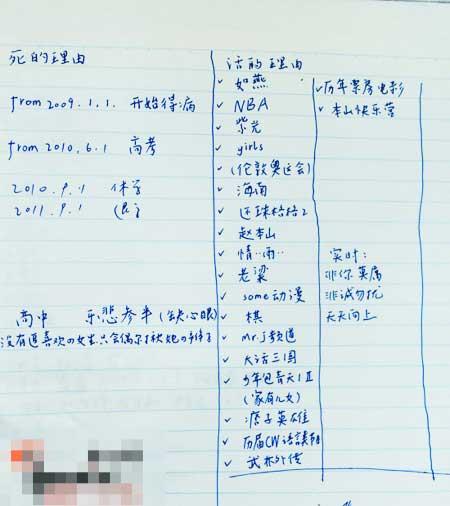 死的理由
from 2009.1.1. 开始得病
from 2010.6.1 高考
2010.9.1 休学
2011.9.1
高中 乐悲参半(缺心眼)
没有追喜欢の女生只会偶尔
活的理由
✓ 如燕
✓ NBA
✓ 紫光
✓ girls
✓ (伦敦奥运会)
✓ 海南
✓ 还珠格格2
✓ 赵本山
✓ 情…雨…
✓ 老梁
✓ some动漫
✓ 棋
✓ Mr.J频道
✓ 大话三国
✓ 少年包青天 I II
(家有儿女)
✓ 痞子英雄
✓ 历届CW
✓ 武林外传
✓ 历年票房电影
✓ 本山快乐营
实时:
非你莫属
非诚勿扰
天天向上